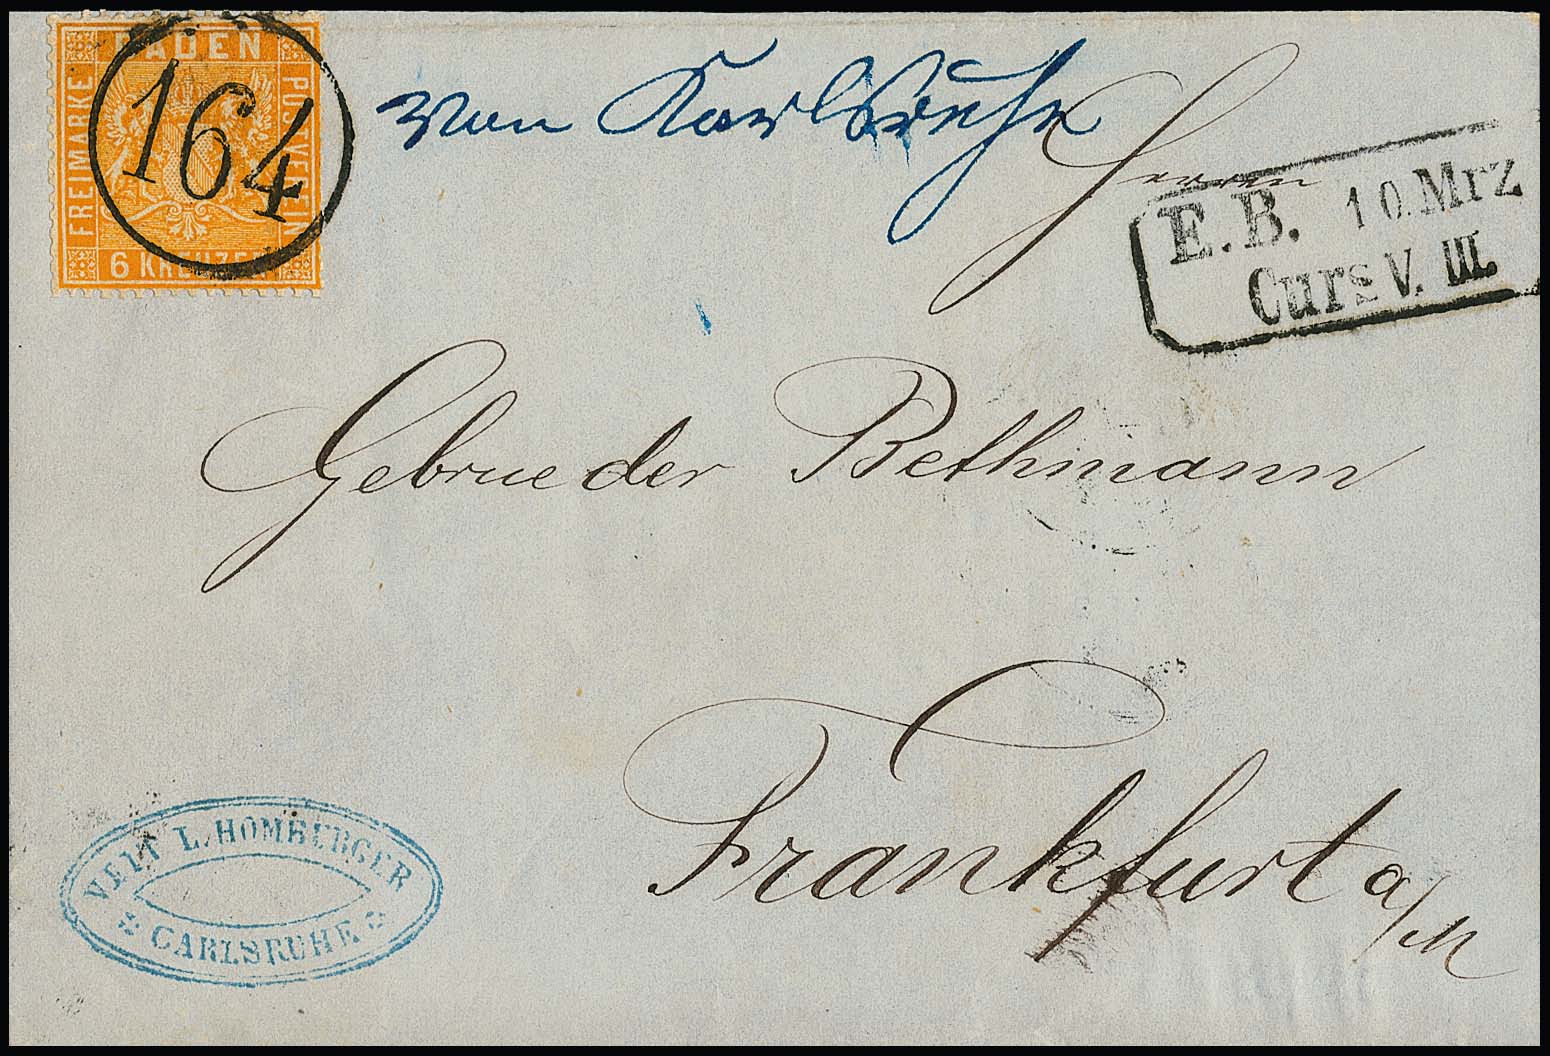 BADEN
FREIMARKE
POSTVEREIN
6 KREUZER
164
von Karlsruhe
Herren
E.B. 10. Mrz
Curs V. III.
Gebrueder Bethmann
Frankfurt a/M
VEIT L. HOMBURGER
CARLSRUHE